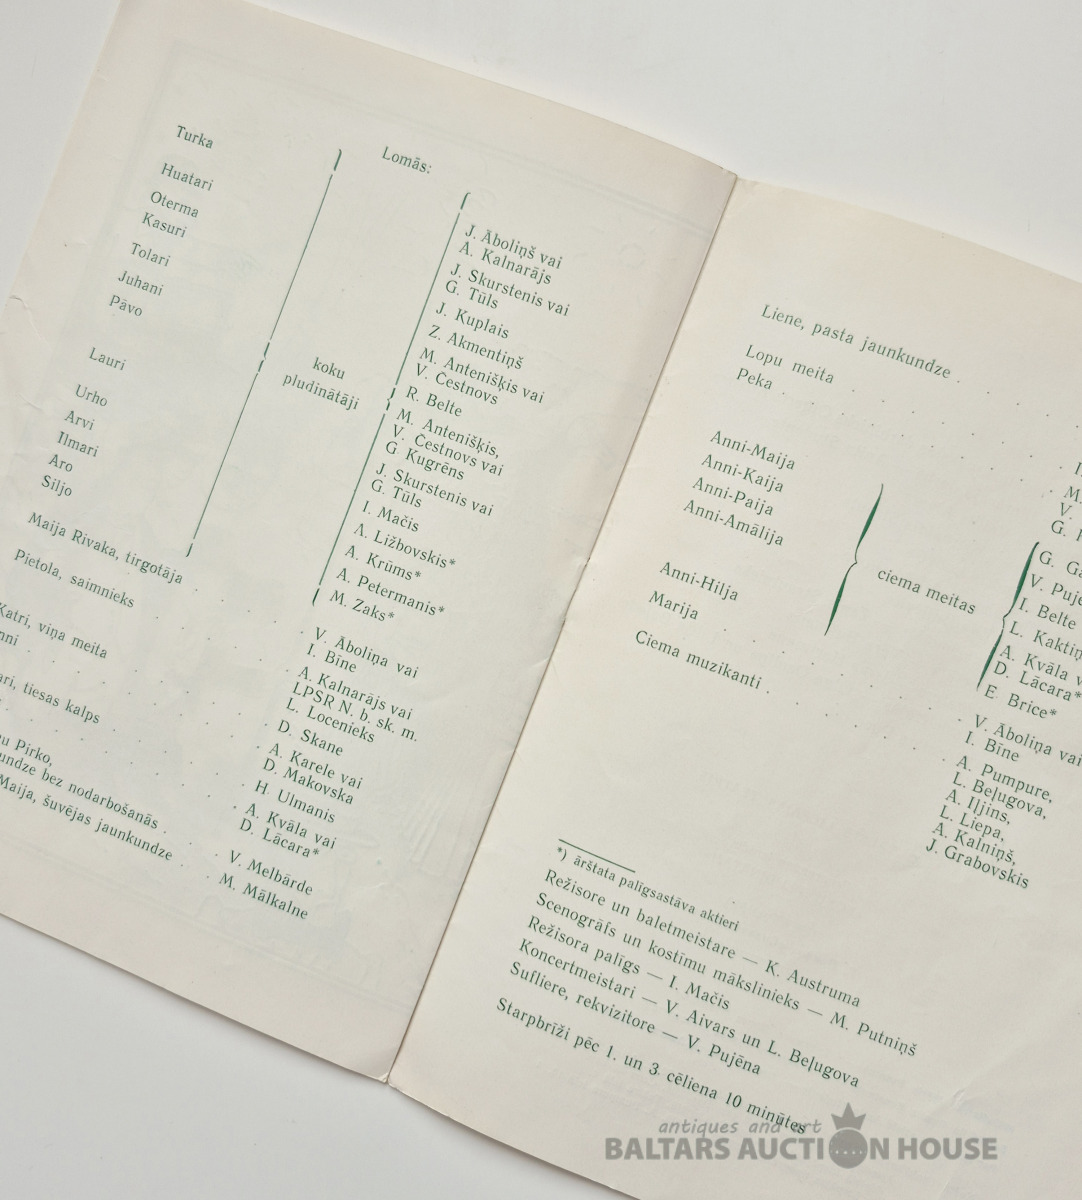 Lomās:
Turka
Huatari
Oterma
Kasuri
Tolari
Juhani
Pāvo
Lauri
Urho
Arvi
Ilmari
Aro
Siljo
koku
pludinātāji
J. Āboliņš vai
A. Kalnarājs
J. Skurstenis vai
G. Tūls
J. Kuplais
Z. Akmentiņš
M. Antenišķis vai
V. Čestnovs
R. Belte
M. Antenišķis,
V. Čestnovs vai
G Kugrēns
J. Skurstenis vai
G. Tūls
I. Mačis
A. Ližbovskis*
A. Krūms*
A. Petermanis*
M. Zaks*
Maija Rivaka, tirgotāja
Pietola, saimnieks
Katri, viņa meita
tiesas kalps
Pirko,
bez nodarbošanās .
Maija, šuvējas jaunkundze
V. Āboliņa vai
I. Bīne
A. Kalnarājs vai
LPSR N. b. sk. m.
L. Locenieks
D. Skane
A. Karele vai
D. Makovska
H. Ulmanis
A. Kvāla vai
D. Lācara*
V. Melbārde
M. Mālkalne
Liene, pasta jaunkundze .
Lopu meita .
Peka .
Anni-Maija
Anni-Kaija
Anni-Paija
Anni-Amālija
Anni-Hilja
Marija
Ciema muzikanti .
ciema meitas
M.
V.
G.
G.
V.
I. Belte
L.
A. Kvāla
D. Lācara*
E. Brice*
V. Āboliņa vai
I. Bīne
A. Pumpure,
L. Beļugova,
A. Iļjins,
L. Liepa,
A. Kalniņš,
J. Grabovskis
*) ārštata palīgsastāva aktieri
Režisore un baletmeistare — K. Austruma
Scenogrāfs un kostīmu mākslinieks — M. Putniņš
Režisora palīgs — I. Mačis
Koncertmeistari — V. Aivars un L. Beļugova
Sufliere, rekvizitore — V. Pujēna
Starpbrīži pēc 1. un 3. cēliena 10 minūtes
antiques and art
BALTARS AUCTION HOUSE